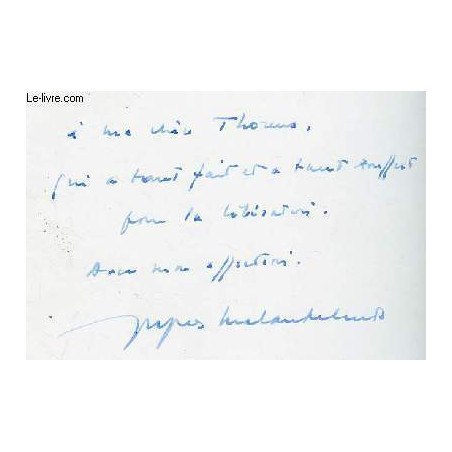 Le-livre.com
à mon cher Thorens,
qui a tant fait et a tant souffert
pour la libération.
Avec mon affection.
Jacques